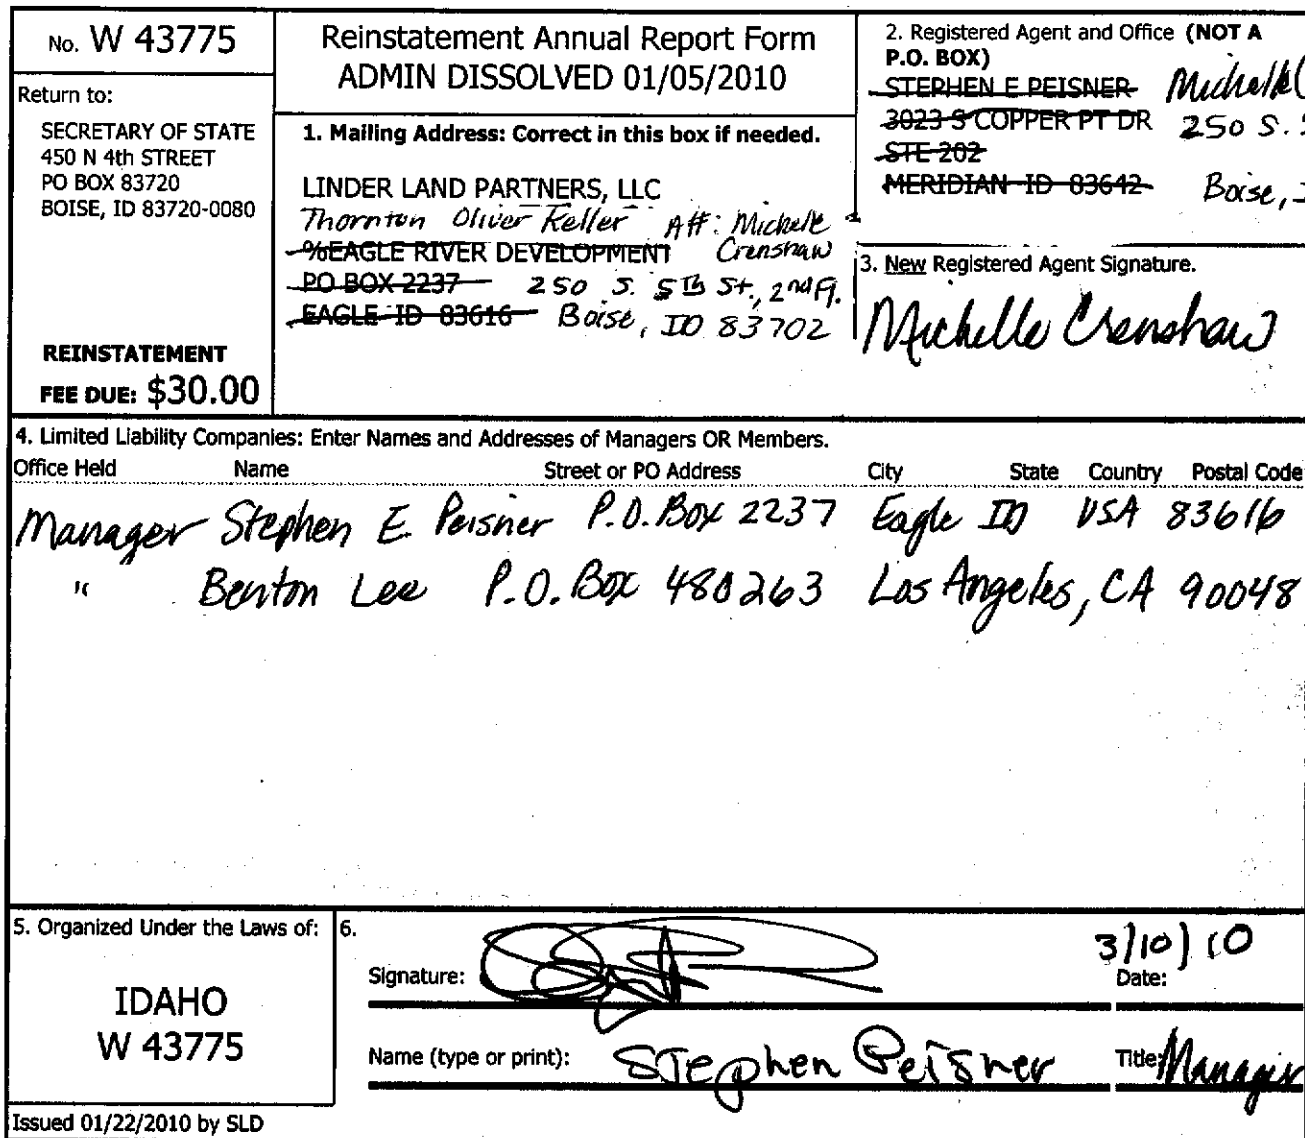 No. W 43775
Return to:
SECRETARY OF STATE
450 N 4th STREET
PO BOX 83720
BOISE, ID 83720-0080
REINSTATEMENT
FEE DUE: $30.00
Reinstatement Annual Report Form
ADMIN DISSOLVED 01/05/2010
1. Mailing Address: Correct in this box if needed.
LINDER LAND PARTNERS, LLC
Thornton Oliver Keller Att: Michele
%EAGLE RIVER DEVELOPMENT Crenshaw
PO BOX 2237 250 S. 5th St., 2nd Fl.
EAGLE ID 83616 Boise, ID 83702
2. Registered Agent and Office (NOT A
P.O. BOX)
STEPHEN E PEISNER Michelle
3023 S COPPER PT DR 250 S.
STE 202
MERIDIAN ID 83642 Boise,
3. New Registered Agent Signature.
Michelle Crenshaw
4. Limited Liability Companies: Enter Names and Addresses of Managers OR Members.
Office Held Name Street or PO Address City State Country Postal Code
Manager Stephen E. Peisner P.O. Box 2237 Eagle ID USA 83616
" Benton Lee P.O. Box 480263 Los Angeles, CA 90048
5. Organized Under the Laws of:
IDAHO
W 43775
6.
Signature:
3/10/10
Date:
Name (type or print): Stephen Peisner Title: Manager
Issued 01/22/2010 by SLD